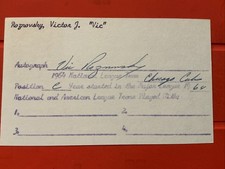 Roznovsky, Victor J. "Vic"
Autograph Vic Roznovsky
1964 National League Team Chicago Cubs
Position C Year started in the Major League 64
National and American League Teams Played With:
1. 2.
3. 4.